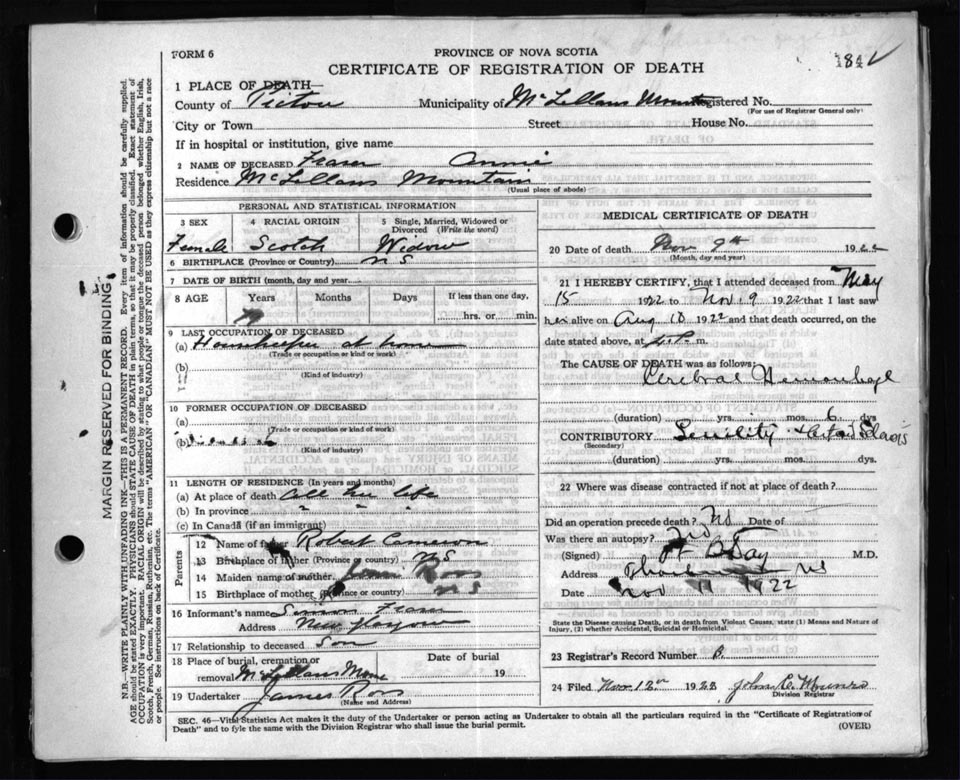 FORM 6
PROVINCE OF NOVA SCOTIA
CERTIFICATE OF REGISTRATION OF DEATH
1842
1 PLACE OF DEATH
County of Pictou Municipality of McLellans Mount Registered No.
(For use of Registrar General only)
City or Town Street House No.
If in hospital or institution, give name
2 NAME OF DECEASED Fraser Annie
Residence McLellans Mountain
(Usual place of abode)
PERSONAL AND STATISTICAL INFORMATION
3 SEX 4 RACIAL ORIGIN 5 Single, Married, Widowed or Divorced (Write the word)
Female Scotch Widow
6 BIRTHPLACE (Province or Country) N S
7 DATE OF BIRTH (month, day and year)
8 AGE Years Months Days If less than one day,
79 hrs. or min.
9 LAST OCCUPATION OF DECEASED
(a) Housekeeper at home
(Trade or occupation or kind or work)
(b)
(Kind of industry)
10 FORMER OCCUPATION OF DECEASED
(a)
(Trade or occupation or kind of work)
(b)
(Kind of industry)
11 LENGTH OF RESIDENCE (In years and months)
(a) At place of death all her life
(b) In province " " "
(c) In Canada (if an immigrant)
Parents
12 Name of father Robert Cameron
13 Birthplace of father (Province or country) N S
14 Maiden name of mother Ross
15 Birthplace of mother (Province or country) N S
16 Informant's name Simon Fraser
Address New Glasgow
17 Relationship to deceased Son
18 Place of burial, cremation or removal McLellans Moun
Date of burial 19
19 Undertaker James Ross
(Name and Address)
MEDICAL CERTIFICATE OF DEATH
20 Date of death Nov 9th 1922
(Month, day and year)
21 I HEREBY CERTIFY, that I attended deceased from May
15 1922 to Nov. 9 1922 that I last saw
her alive on Aug 18 1922 and that death occurred, on the
date stated above, at 2 P. m.
The CAUSE OF DEATH was as follows:
Cerebral Hemorrhage
(duration) yrs. mos. 6 dys
CONTRIBUTORY Senility
(Secondary)
(duration) yrs. mos. dys.
22 Where was disease contracted if not at place of death?
Did an operation precede death? No Date of
Was there an autopsy? No
(Signed) Day M.D.
Address Thorburn NS
Date Nov 11 1922
State the Disease causing Death, or in death from Violent Causes, state (1) Means and Nature of
Injury, (2) whether Accidental, Suicidal or Homicidal.
23 Registrar's Record Number
24 Filed Nov. 12th 1922 John C. Munro
Division Registrar
SEC. 46—Vital Statistics Act makes it the duty of the Undertaker or person acting as Undertaker to obtain all the particulars required in the "Certificate of Registration of
Death" and to fyle the same with the Division Registrar who shall issue the burial permit. (OVER)
MARGIN RESERVED FOR BINDING
N.B.—WRITE PLAINLY WITH UNFADING INK—THIS IS A PERMANENT RECORD. Every item of information should be carefully supplied.
AGE should be stated EXACTLY. PHYSICIANS should STATE CAUSE OF DEATH in plain terms, so that it may be properly classified. Exact statement of
OCCUPATION is very important. RACIAL ORIGIN will be described by stating to what people or tongue the deceased person belonged whether English, Irish,
Scotch, French, German, Russian, Ruthenian, etc. The terms "AMERICAN" OR "CANADIAN" MUST NOT BE USED as they express citizenship but not a race
or people. See instructions on back of Certificate.